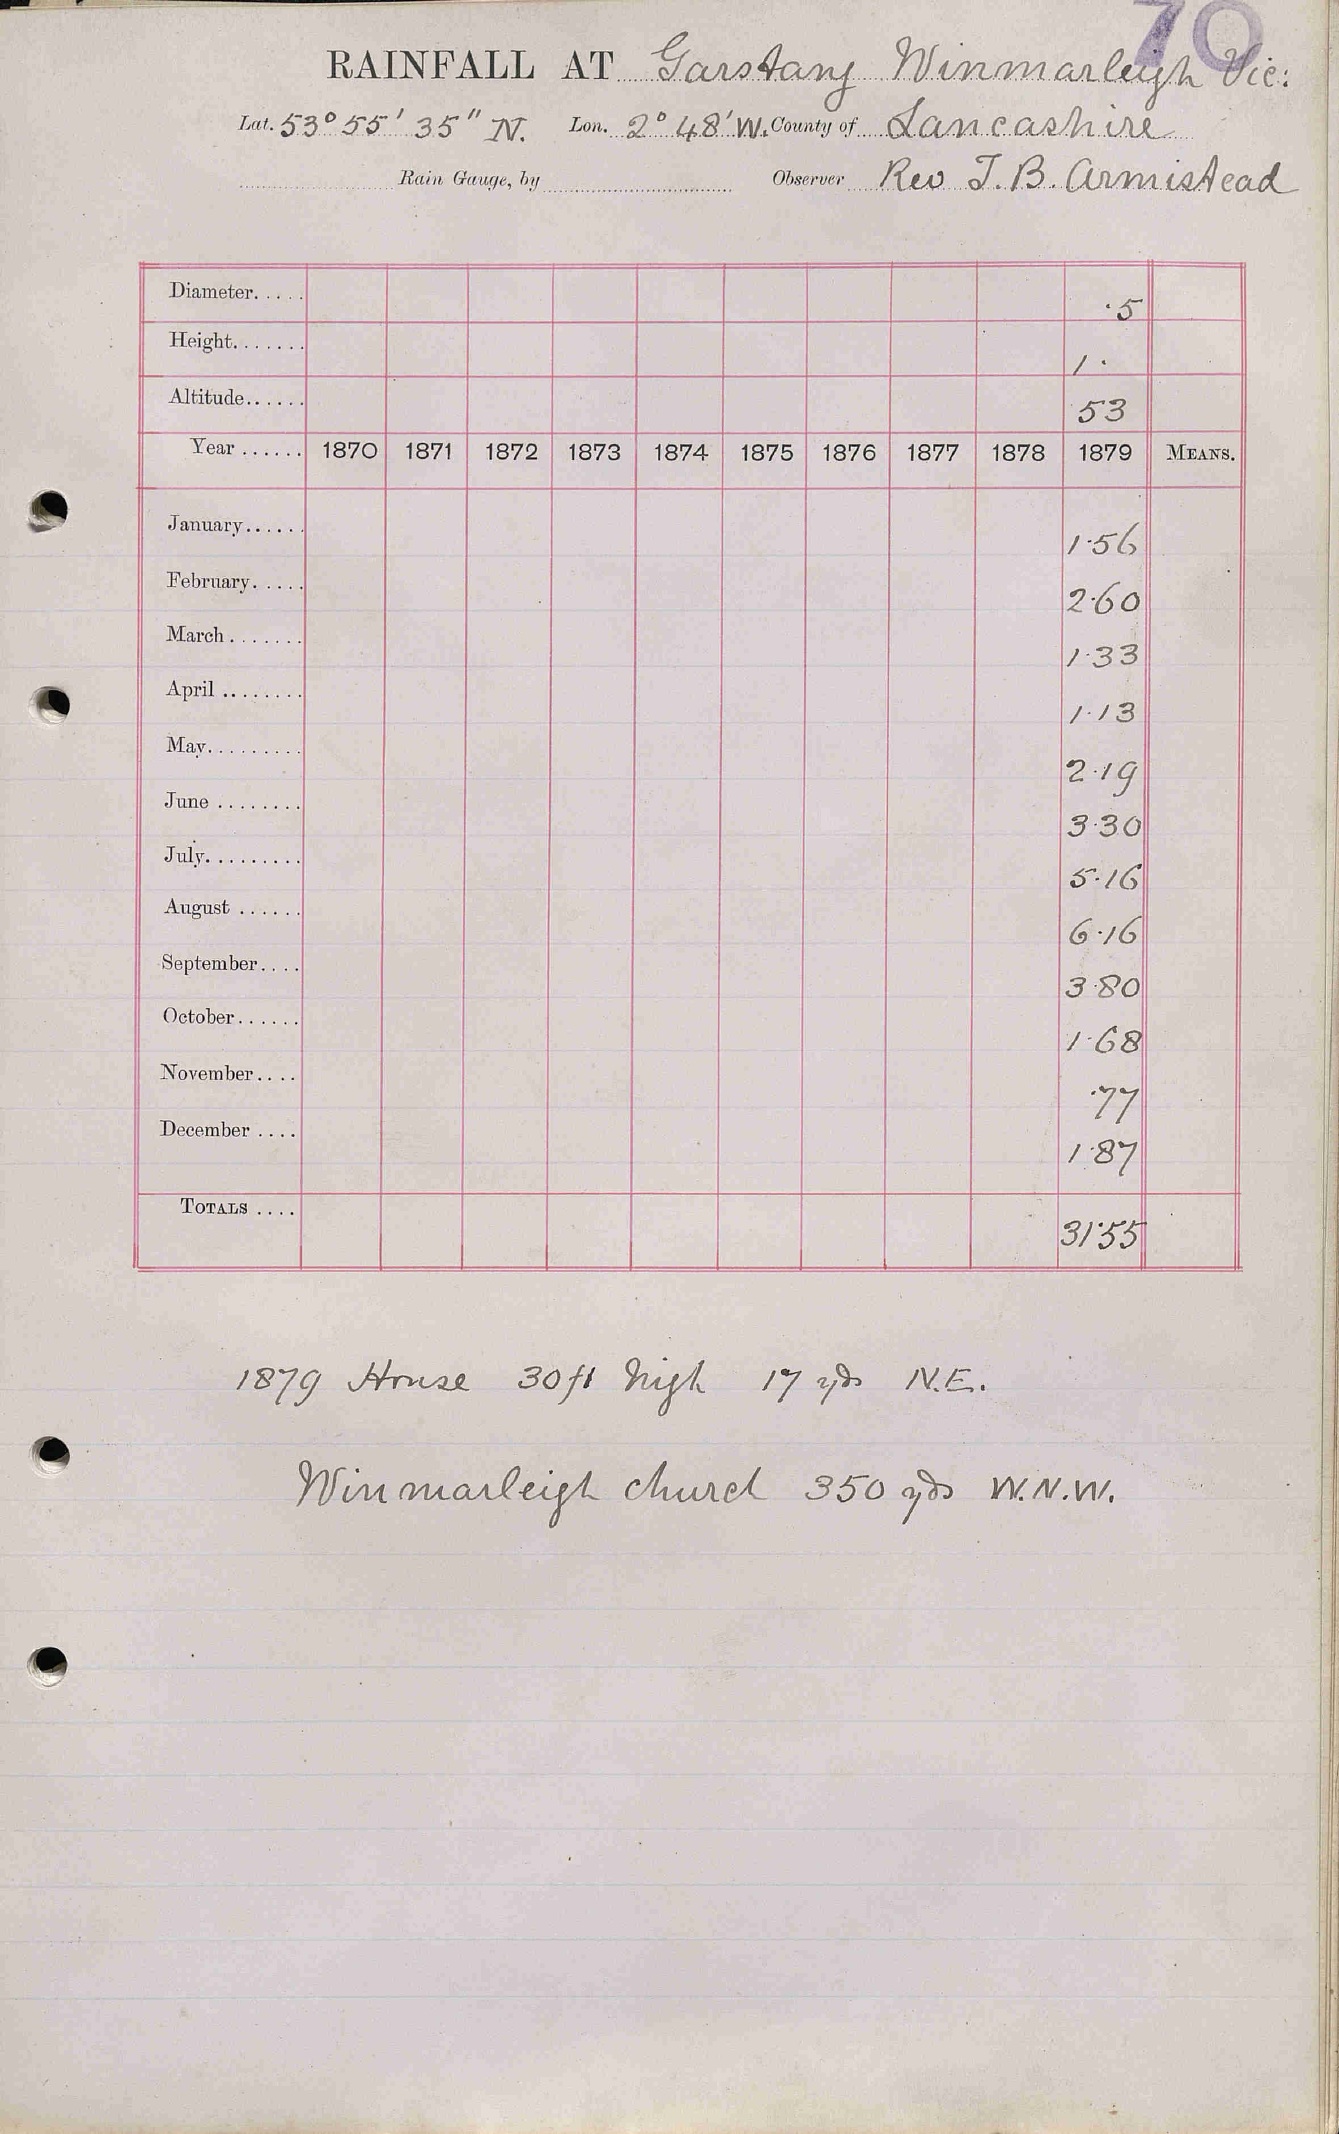 70
RAINFALL AT Garstang Winmarleigh Vic:
Lat. 53° 55' 35" N. Lon. 2° 48' W. County of Lancashire
Rain Gauge, by Observer Rev T. B. Armistead
Diameter..... ·5
Height....... 1·
Altitude...... 53
Year ...... 1870 1871 1872 1873 1874 1875 1876 1877 1878 1879 MEANS.
January...... 1·56
February..... 2·60
March ....... 1·33
April ........ 1·13
May......... 2·19
June ........ 3·30
July......... 5·16
August ...... 6·16
September.... 3·80
October...... 1·68
November.... ·77
December .... 1·87
TOTALS .... 31·55
1879 House 30 ft high 17 yds N.E.
Winmarleigh church 350 yds W.N.W.